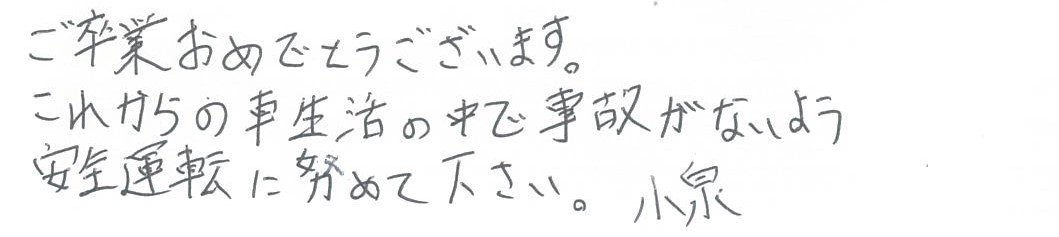 ご卒業おめでとうございます。
これからの車生活の中で事故がないよう
安全運転に努めて下さい。 小泉